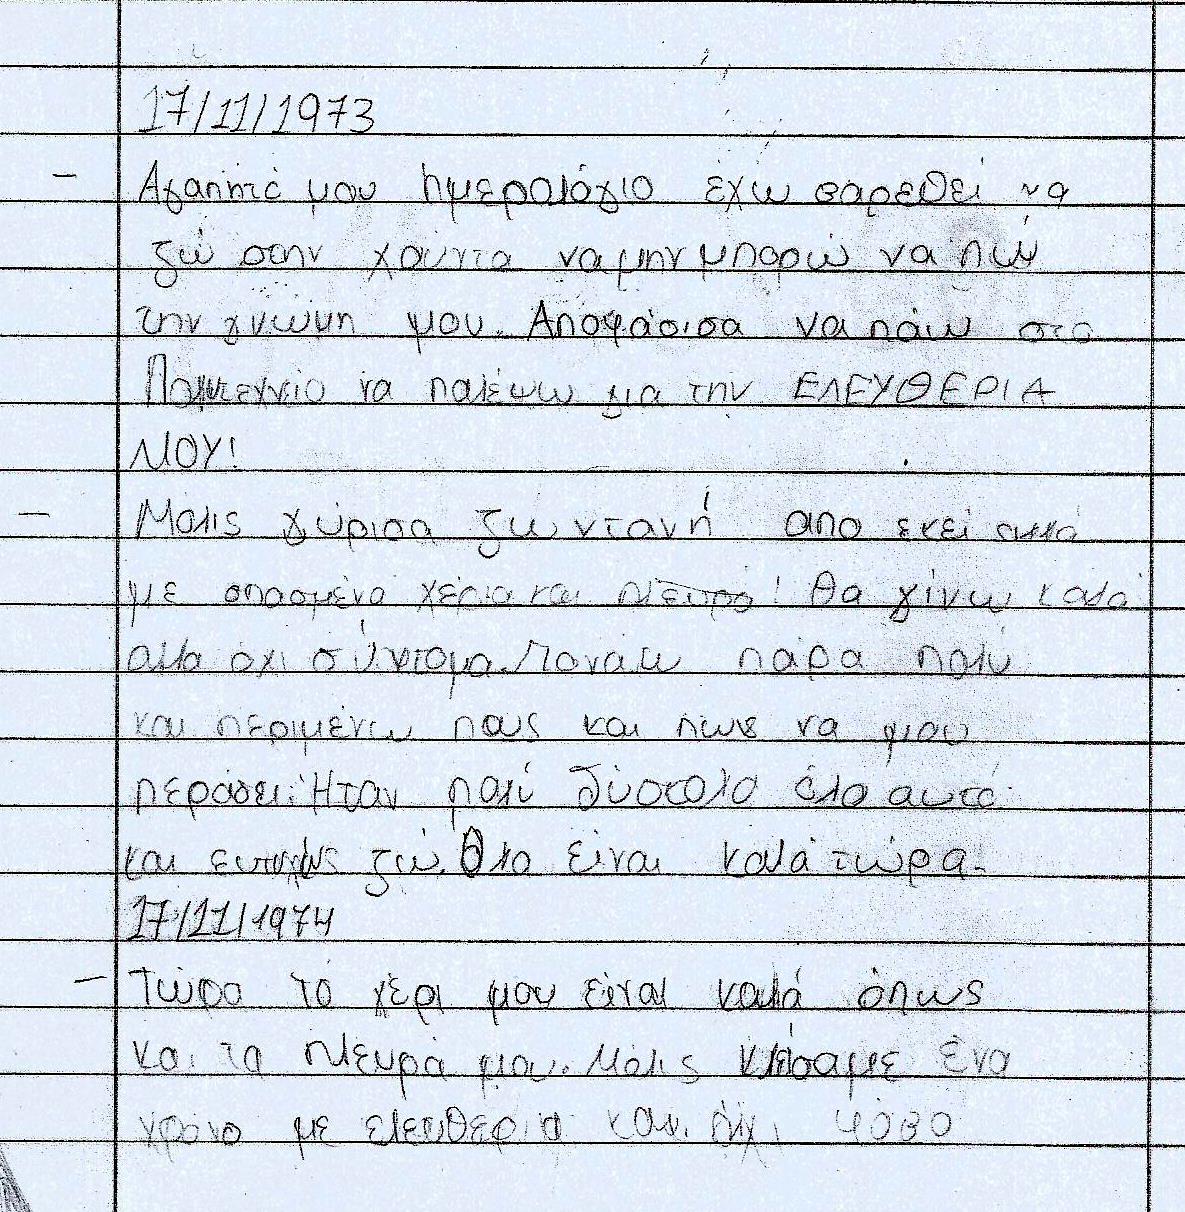 17/11/1973
- Αγαπητό μου ημερολόγιο έχω βαρεθεί να
ζώ στην χούντα να μην μπορώ να πώ
την γνώμη μου. Αποφάσισα να πάω στο
Πολυτεχνείο να παλέψω για την ΕΛΕΥΘΕΡΙΑ
ΜΟΥ!
- Μόλις γύρισα ζωντανή απο εκεί αλλά
με σπασμένα χέρια και πλευρά! Θα γίνω καλά
αλλα όχι σύντομα. Πονάω πάρα πολύ
και περιμένω πως και πως να μου
περάσει. Ήταν πολύ δύσκολο όλο αυτό
και ευτυχώς ζώ. Όλα είναι καλά τώρα.
17/11/1974
- Τώρα το χέρι μου είναι καλά όπως
και τα πλευρά μου. Μόλις κλείσαμε ένα
χρόνο με ελευθερία και όχι φόβο